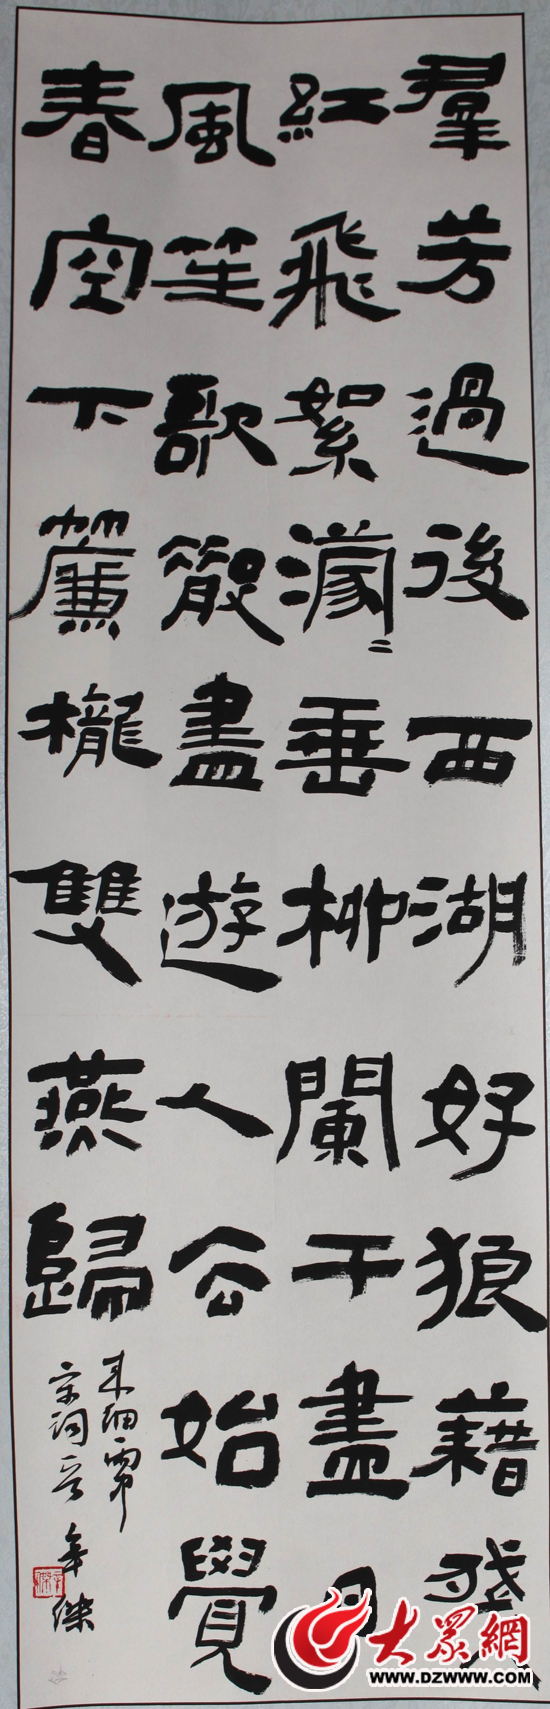 羣芳過後西湖好狼藉残
紅飛絮濛〻垂柳闌干盡日
風笙歌散盡遊人去始覺
春空下簾櫳雙燕歸
来細雨中
宋词一首 辛傑
大眾網
WWW.DZWWW.COM